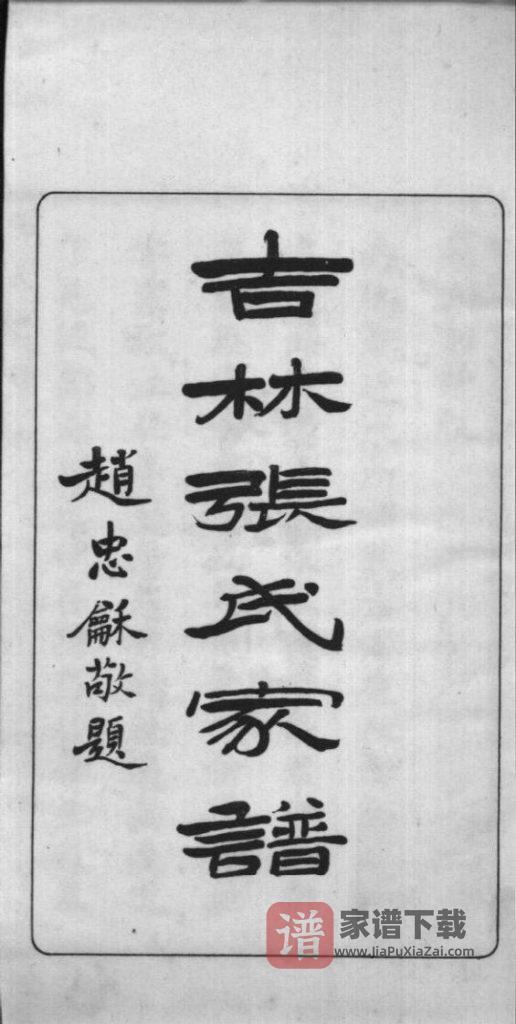 吉林張氏家譜
趙忠龢敬題
谱 家谱下载
www.JiaPuXiaZai.com